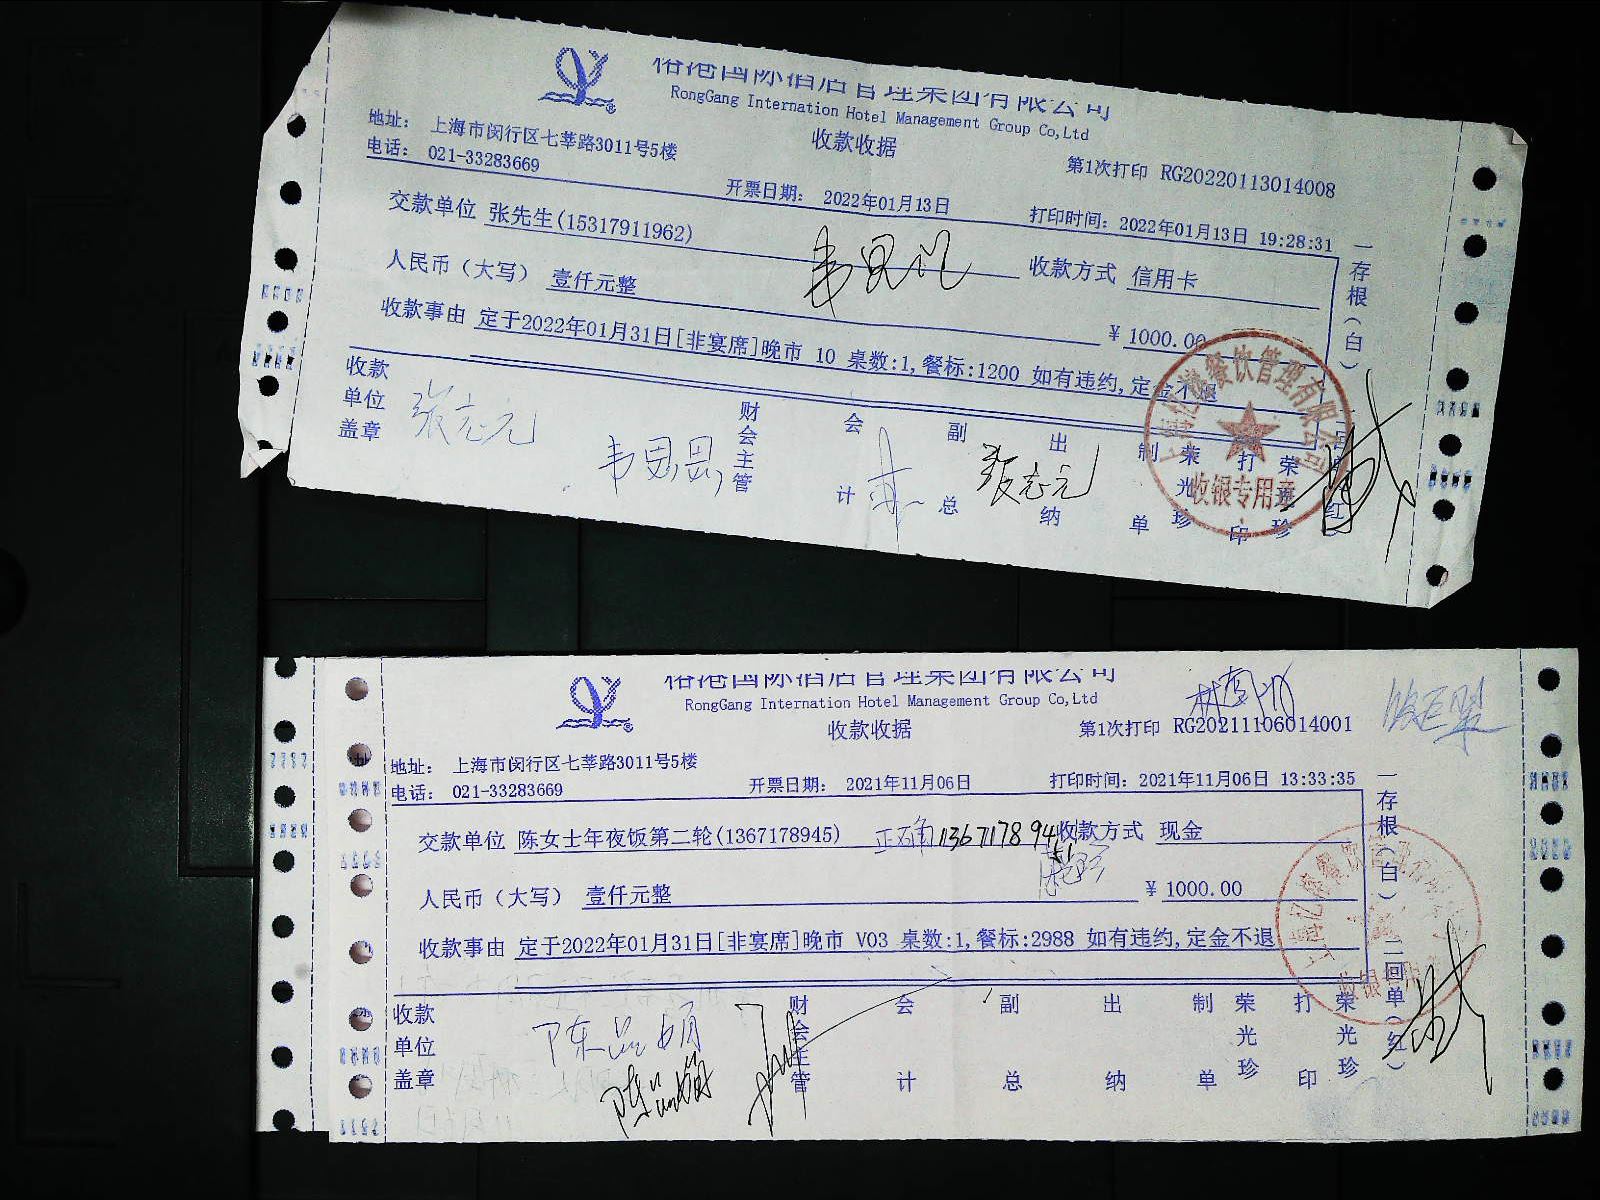 国际酒店管理集团有限公司
RongGang Internation Hotel Management Group Co,Ltd
收款收据
地址： 上海市闵行区七莘路3011号5楼
第1次打印 RG20220113014008
电话： 021-33283669
开票日期： 2022年01月13日
打印时间：2022年01月13日 19:28:31
交款单位 张先生(15317911962)
收款方式 信用卡
人民币（大写） 壹仟元整
¥ 1000.00
收款事由 定于2022年01月31日[非宴席]晚市 10 桌数:1,餐标:1200 如有违约,定金不退
一存根（白）
收款单位盖章
张志元
韦思思
财会主管
会计
副总
张志元
出纳
制单
荣光珍
打印
荣光珍
餐饮管理有限公司
收银专用章
国际酒店管理集团有限公司
RongGang Internation Hotel Management Group Co,Ltd
收款收据
第1次打印 RG20211106014001
地址： 上海市闵行区七莘路3011号5楼
电话： 021-33283669
开票日期： 2021年11月06日
打印时间：2021年11月06日 13:33:35
交款单位 陈女士年夜饭第二轮(1367178945)
正确
收款方式 现金
人民币（大写） 壹仟元整
¥ 1000.00
收款事由 定于2022年01月31日[非宴席]晚市 V03 桌数:1,餐标:2988 如有违约,定金不退
一存根（白） 二回单（红）
收款单位盖章
财会主管
会计
副总
出纳
制单
荣光珍
打印
荣光珍